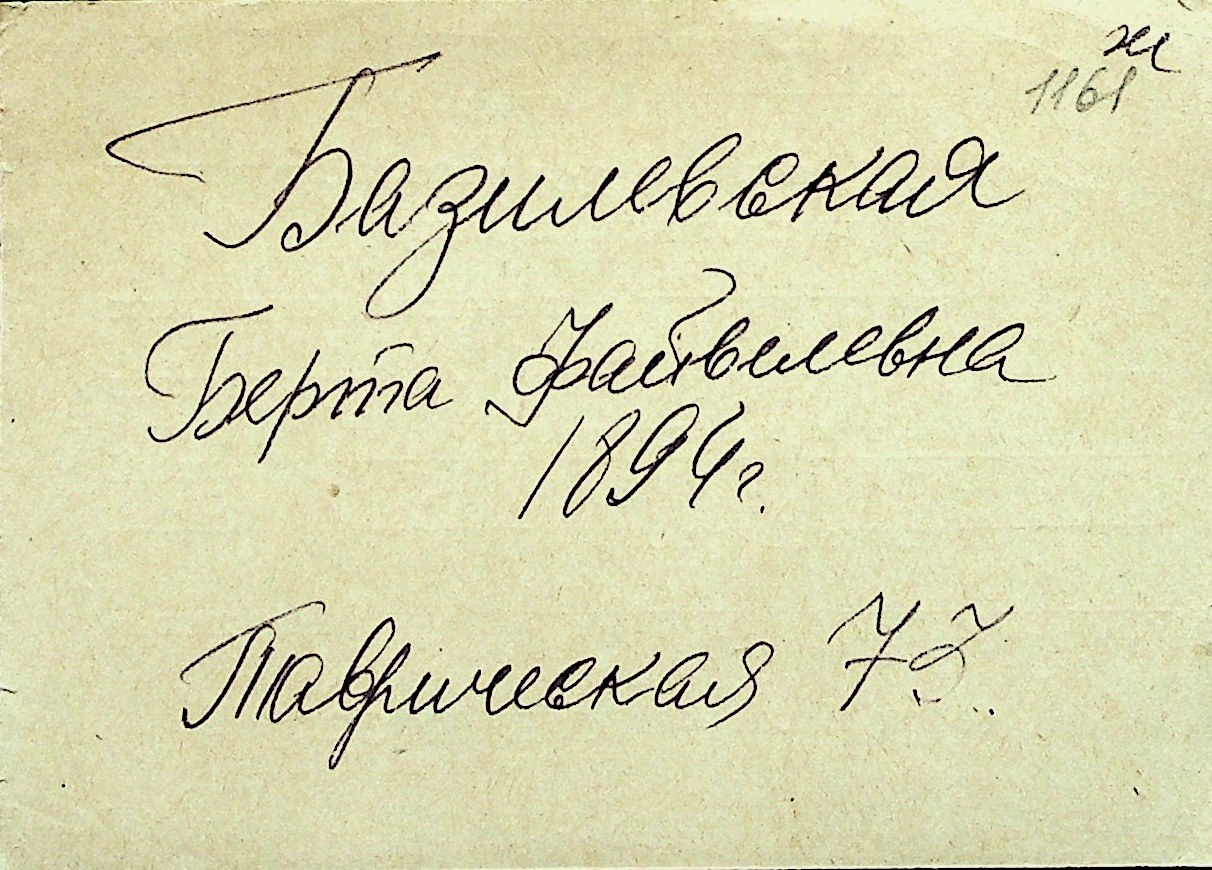 ж
1161
Базилевская
Берта Файвилевна
1894 г.
Таврическая 73